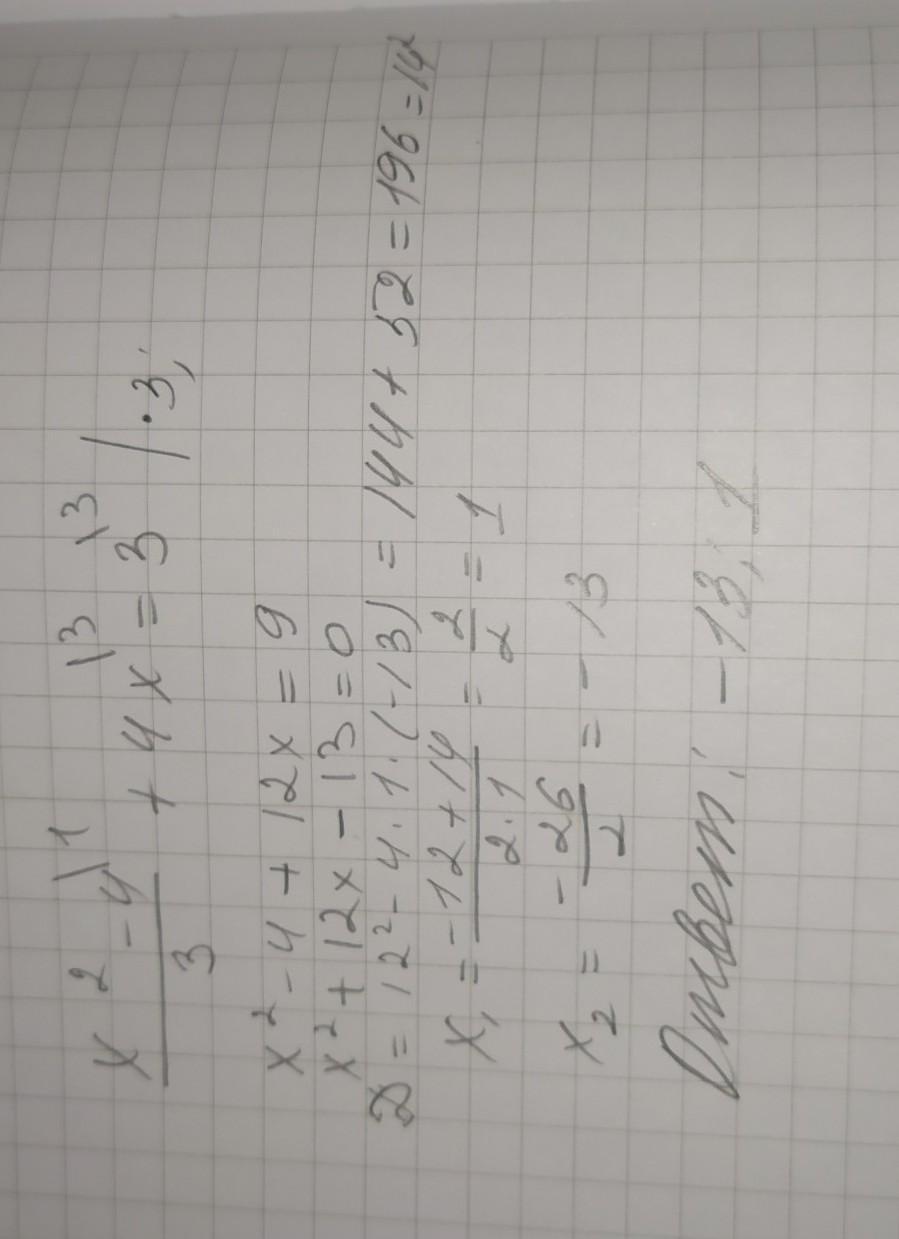 (x² - 4)/3 \1 + 4x \3 = 3 \3 | ·3;
x² - 4 + 12x = 9
x² + 12x - 13 = 0
D = 12² - 4·1·(-13) = 144 + 52 = 196 = 14²
x₁ = (-12 + 14)/(2·1) = 2/2 = 1
x₂ = -26/2 = -13
Ответ: -13; 1